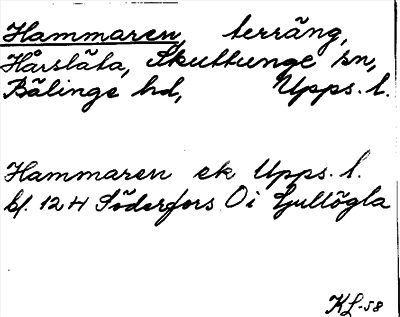 Hammaren, terräng,
Hårsläta, Skuttunge sn,
Bälinge hd, Upps. l.
Hammaren ek Upps. l.
bl. 12 H Söderfors O i Gullögla
KL-58